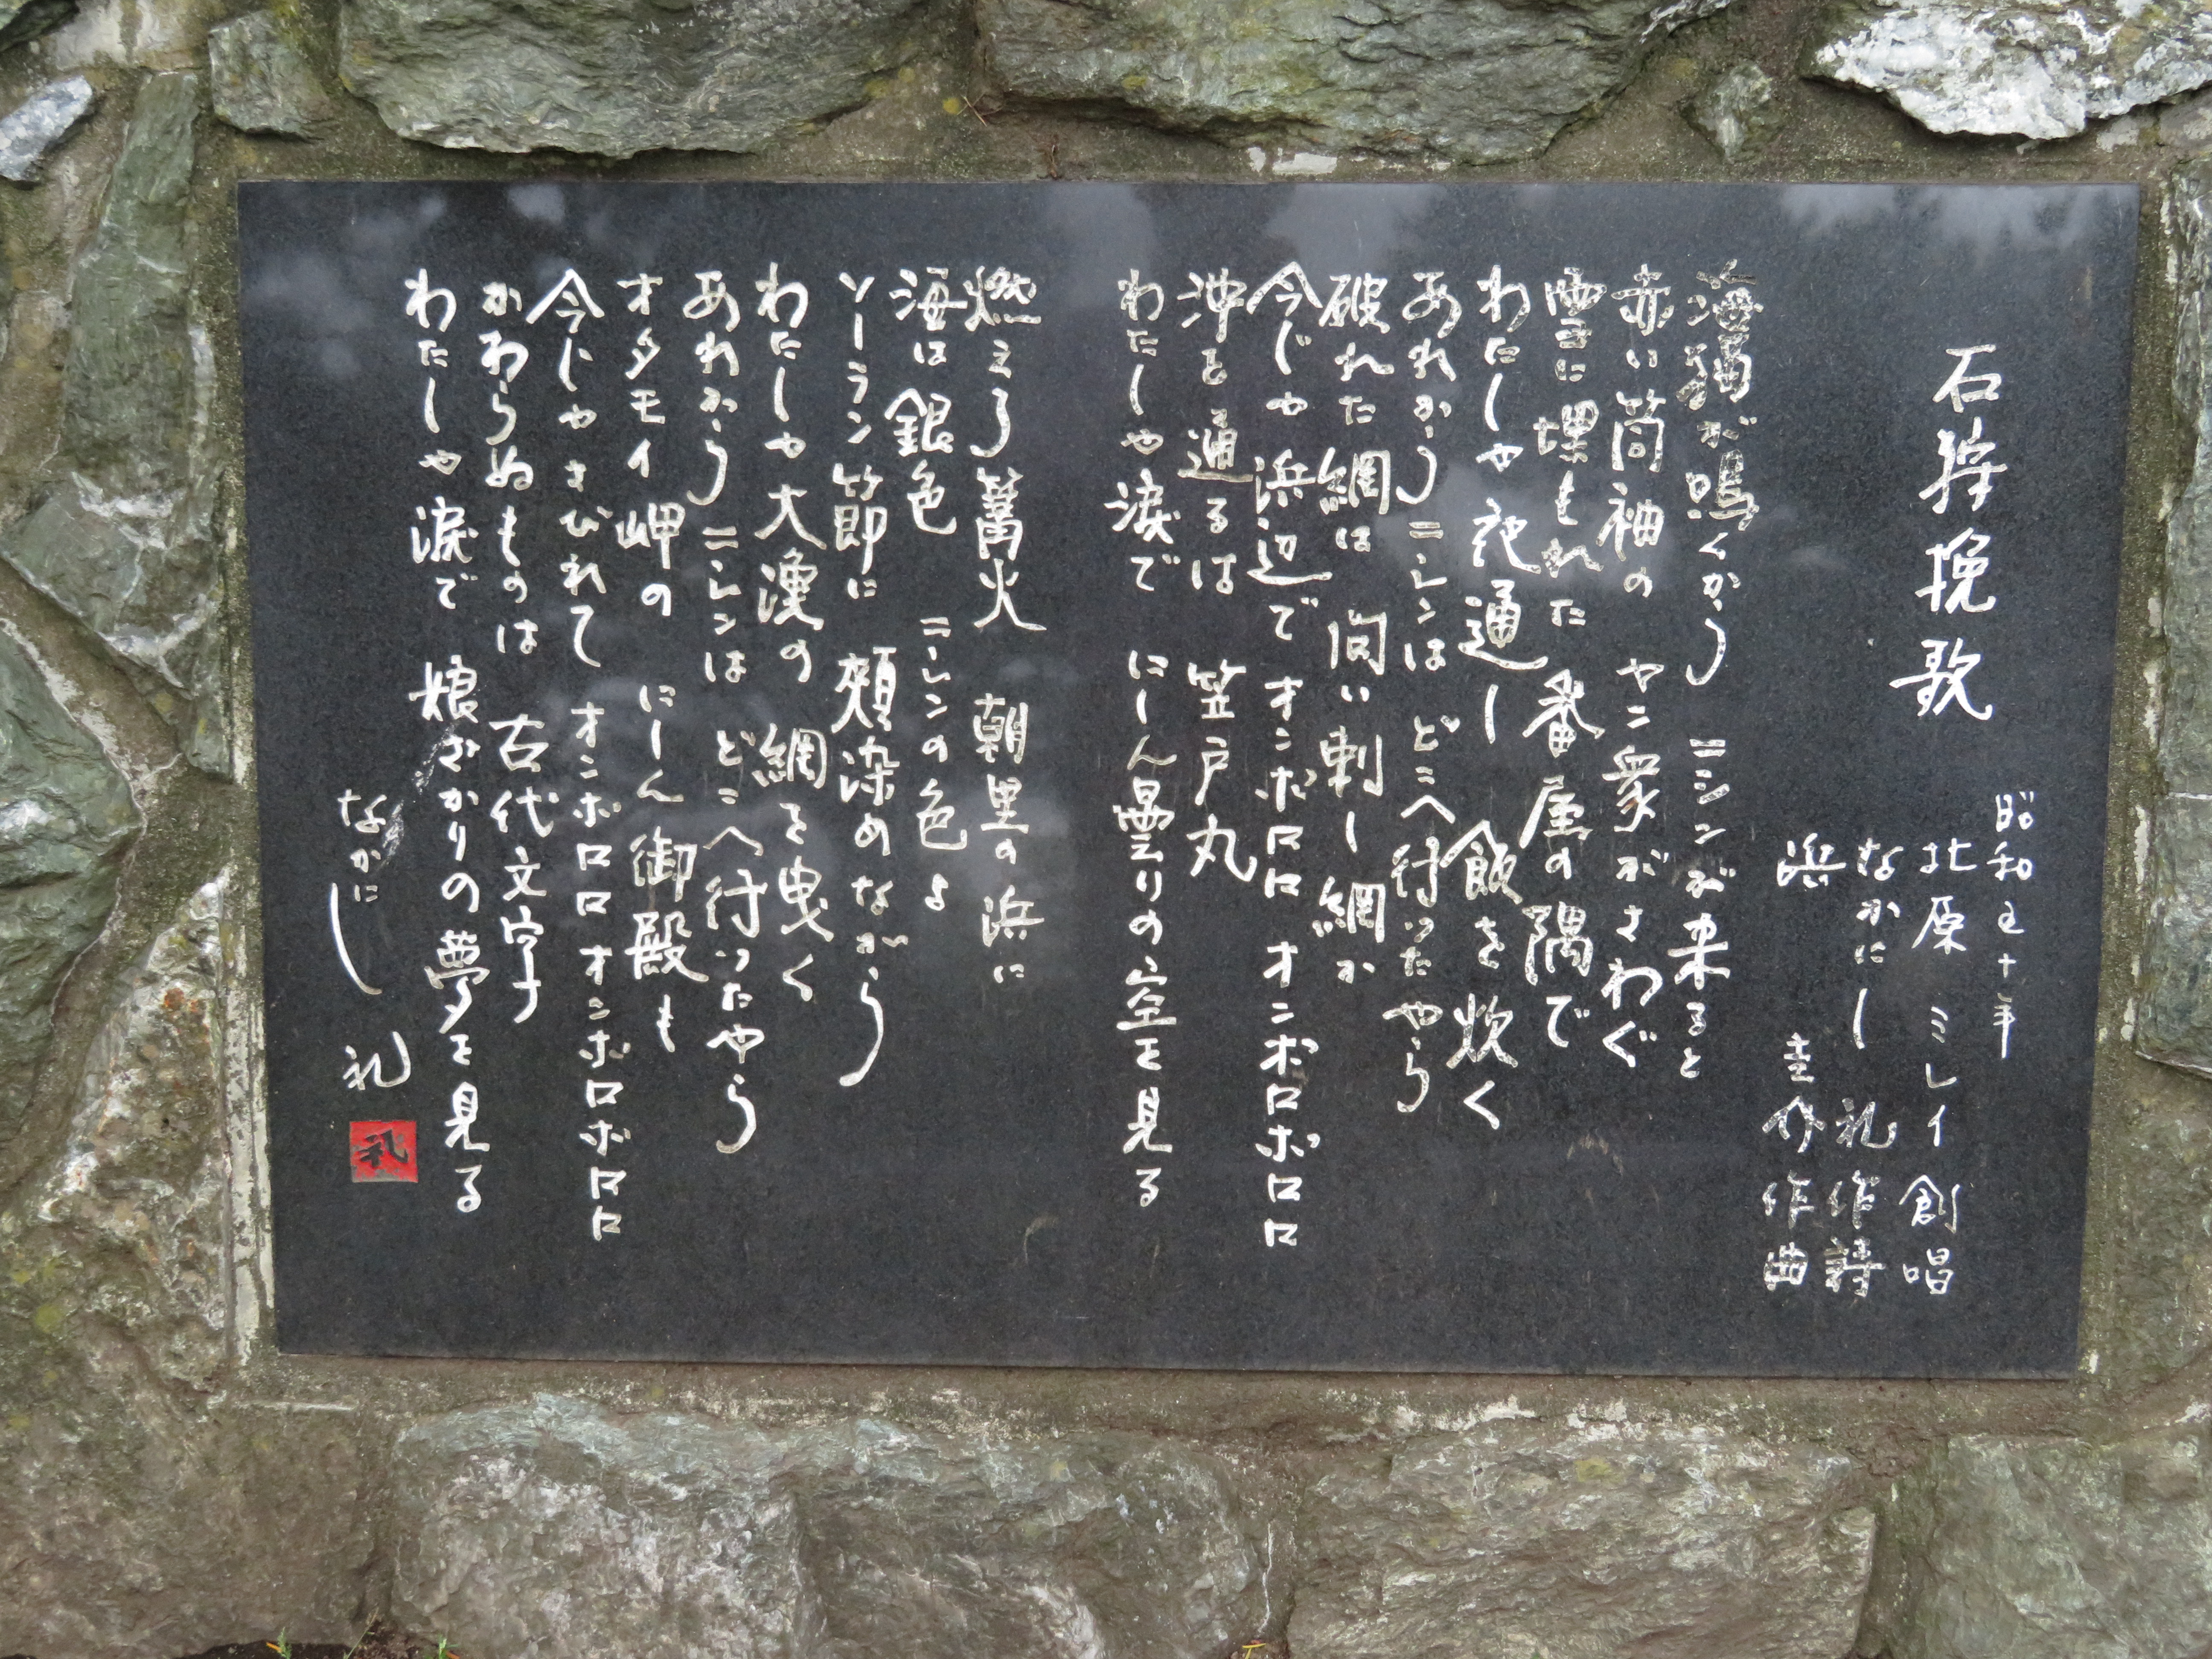 石狩挽歌
昭和五十年
北原 ミレイ 創唱
なかにし 礼 作詩
浜 圭介 作曲
海猫が鳴くから ニシンが来ると
赤い筒袖の ヤン衆がさわぐ
雪に埋もれた 番屋の隅で
わたしゃ夜通し 飯を炊く
あれからニシンは どこへ行ったやら
破れた網は 問い刺し網か
今じゃ浜辺で オンボロロ オンボロボロロ
沖を通るは 笠戸丸
わたしゃ涙で にしん曇りの空を見る
燃える篝火 朝里の浜に
海は銀色 ニシンの色よ
ソーラン節に 頬染めながら
わたしゃ大漁の 網を曳く
あれからニシンは どこへ行ったやら
オタモイ岬の にしん御殿も
今じゃさびれて オンボロロ オンボロボロロ
かわらぬものは 古代文字
わたしゃ涙で 娘ざかりの夢を見る
なかにし 礼
礼